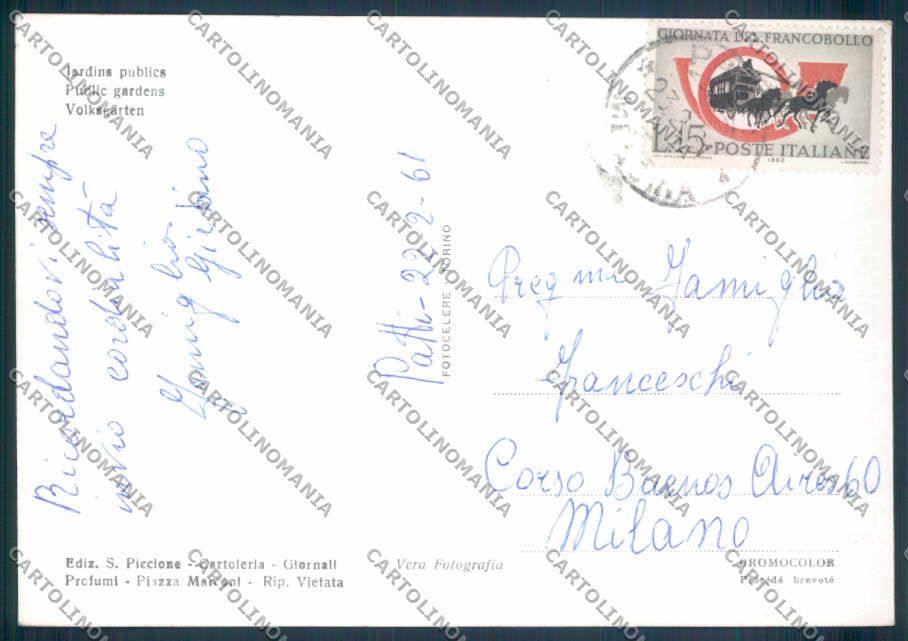 Jardins publics
Public gardens
Volksgärten
Ricordandovi sempre
invio cordialità
Famiglia
Giardino
Patti - 22-2-61
FOTOCELERE - TORINO
GIORNATA DEL FRANCOBOLLO
L.15 POSTE ITALIANE
1960
Preg ma Famiglia
Franceschi
Corso Buenos Aires 60
Milano
Ediz. S. Piccione - Cartoleria - Giornali
Profumi - Piazza Marconi - Rip. Vietata
Vera Fotografia
BROMOCOLOR
Procédé breveté
CARTOLINOMANIA